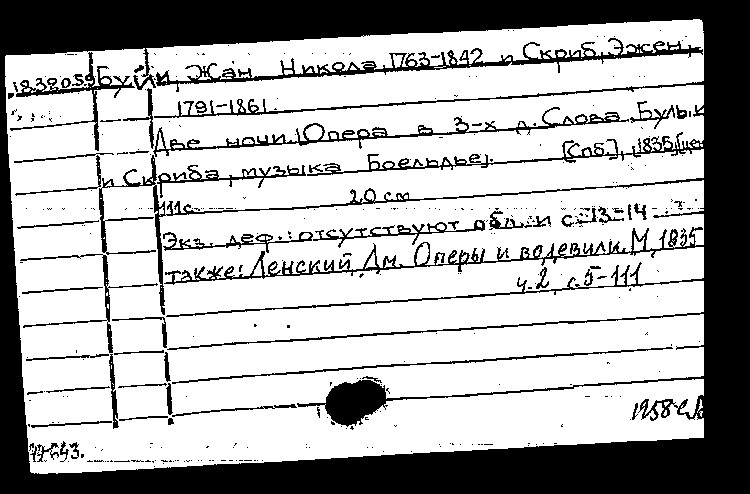 1838059 Буйи, Жан Никола, 1763-1842 и Скриб, Эжен,
1791-1861.
Две ночи. Опера в 3-х д. Слова Булы и
и Скриба, музыка Боельдье. [Спб.], 1835, [цен
111с. 20 см
Экз. деф.: отсутствуют обл. и с. 13-14
также: Ленский, Дм. Оперы и водевили. М, 1835
ч. 2, с. 5-111
1958